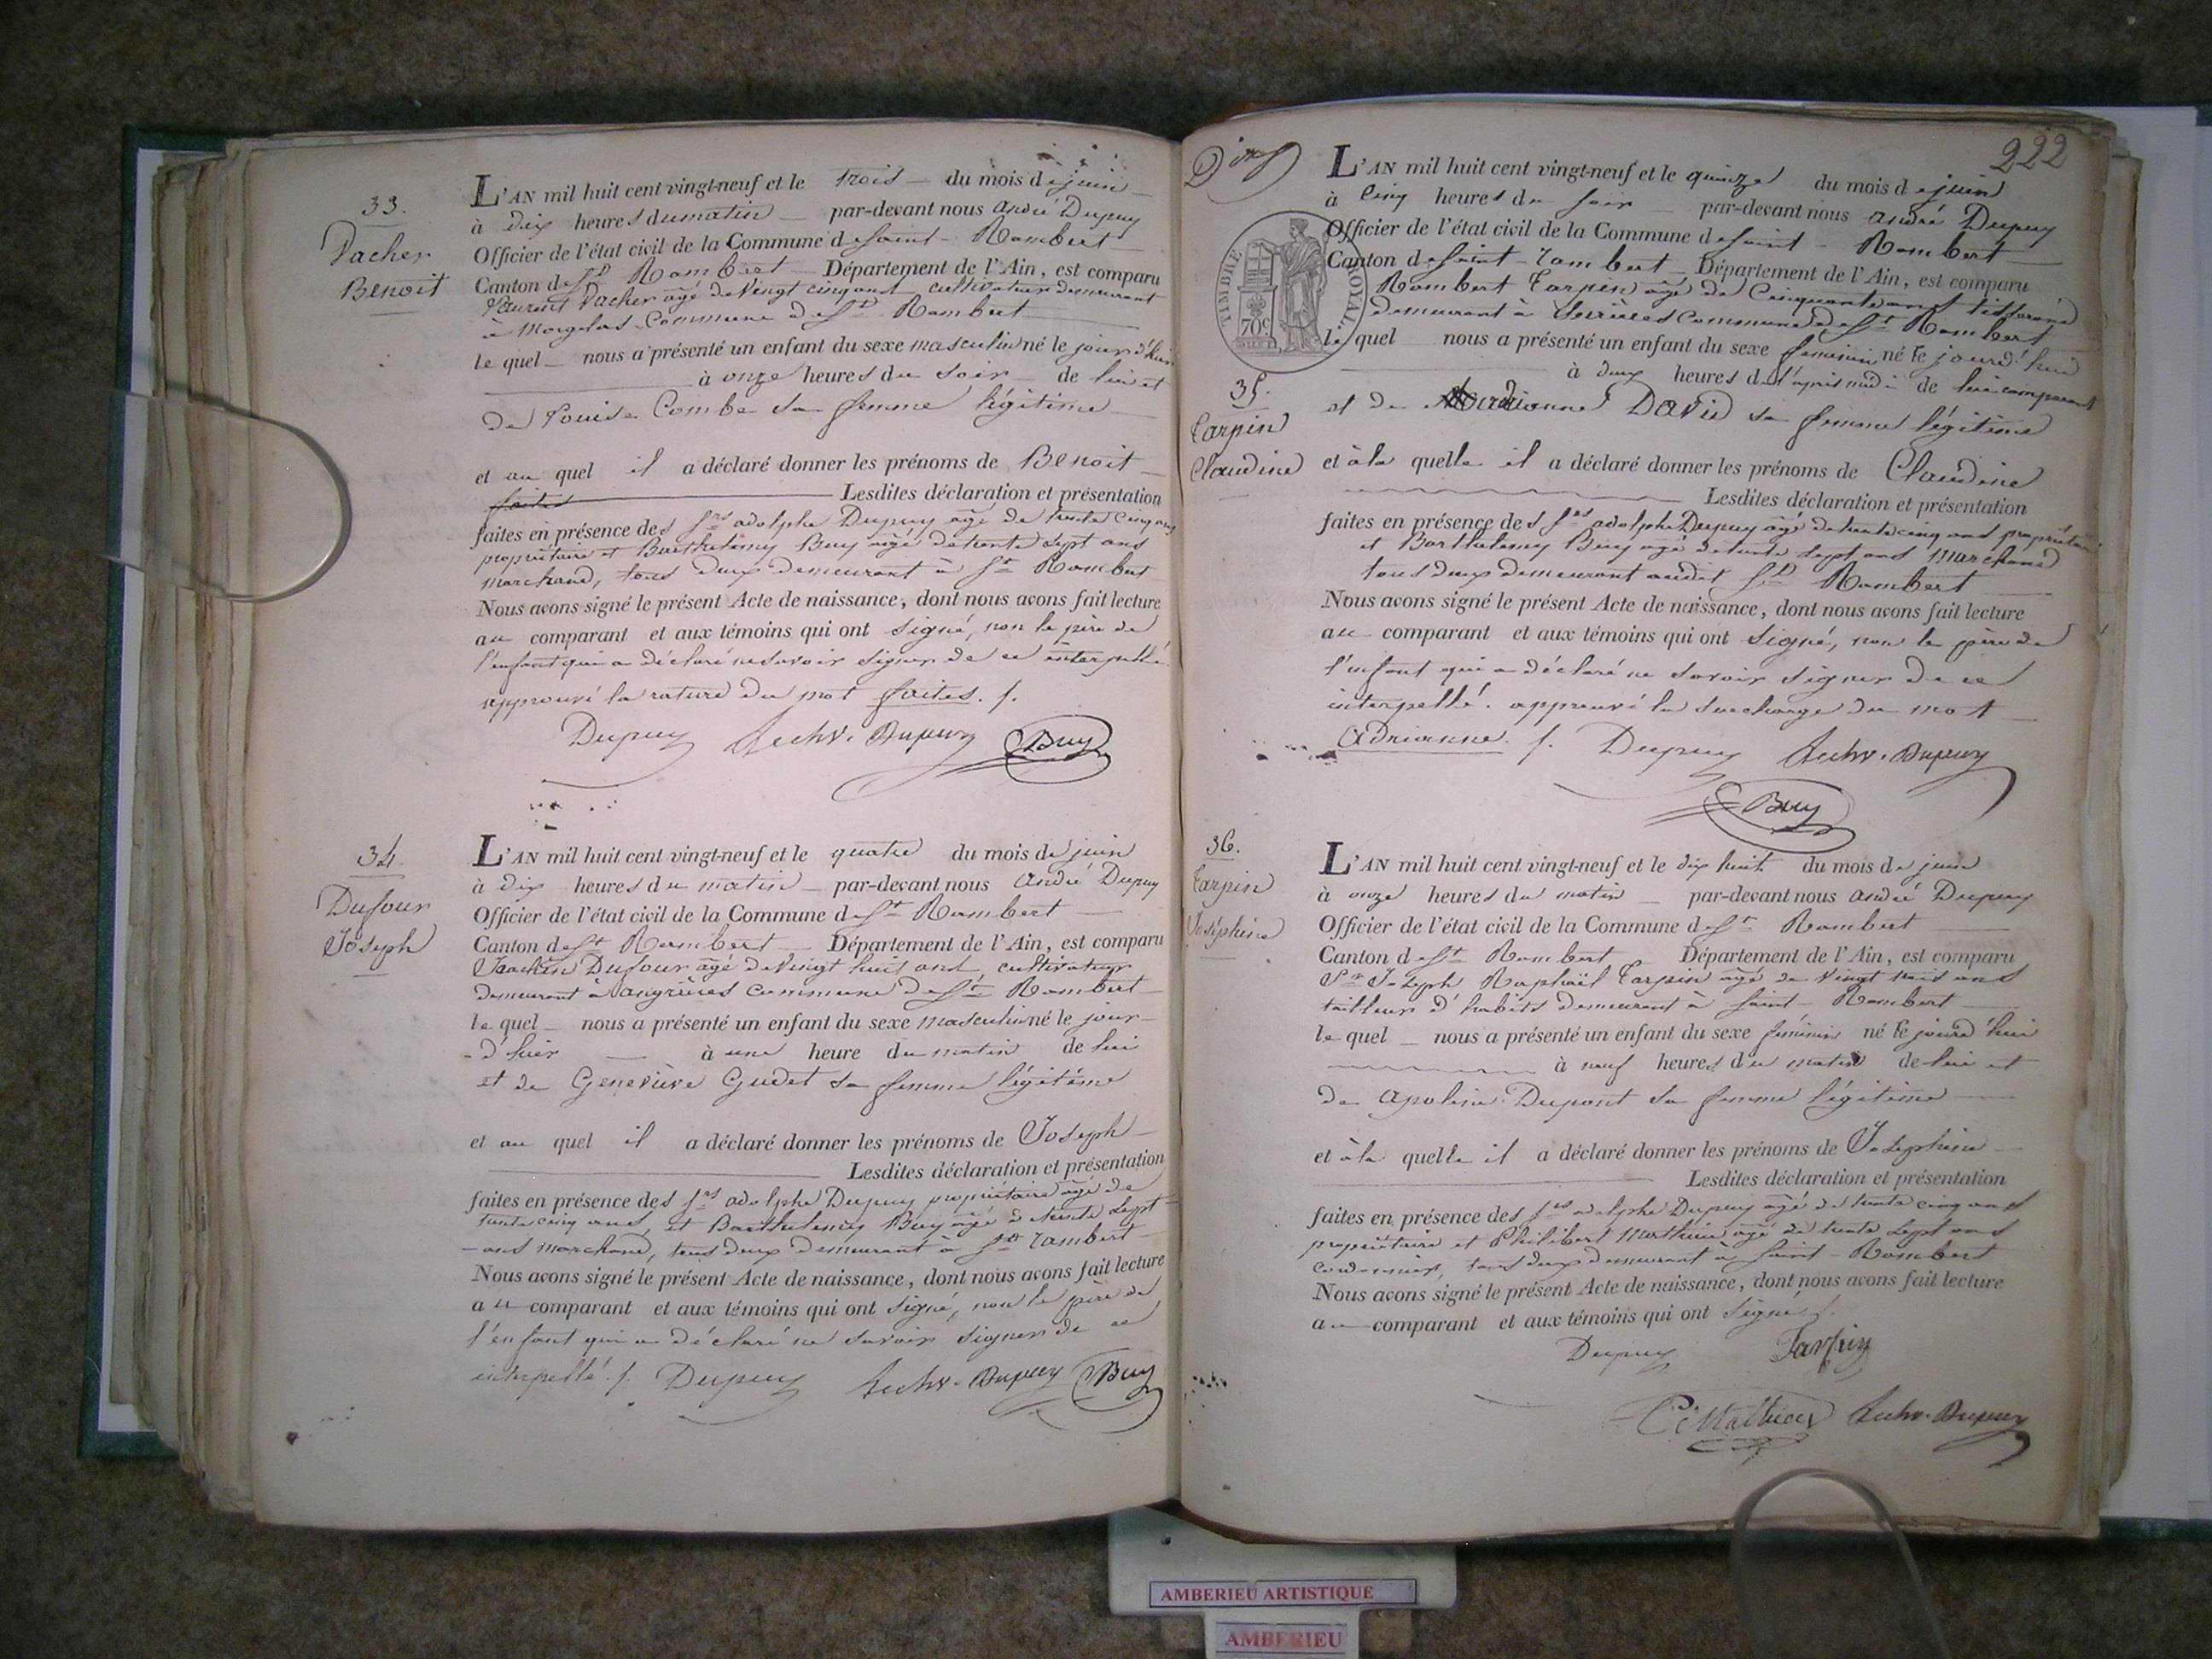 33.
Vacher
Benoit
L'AN mil huit cent vingt-neuf et le trois du mois de juin
à dix heures du matin par-devant nous André Dupuy
Officier de l'état civil de la Commune de saint-Rambert
Canton de St Rambert Département de l'Ain, est comparu
Laurent Vacher âgé de vingt cinq ans cultivateur demeurant
à Morgelas Commune de St Rambert
le quel nous a présenté un enfant du sexe masculin né le jour d'hier
à onze heures du soir de lui et
de Louise Combe sa femme légitime
et au quel il a déclaré donner les prénoms de Benoit
faites Lesdites déclaration et présentation
faites en présence des srs adolphe Dupuy âgé de trente cinq ans
propriétaire et Barthelemy Buy âgé de trente sept ans
marchand, tous deux demeurant à St Rambert
Nous avons signé le présent Acte de naissance, dont nous avons fait lecture
au comparant et aux témoins qui ont signé, non le père de
l'enfant qui a déclaré ne savoir signer de ce interpellé.
approuvé la rature du mot faites. /.
Dupuy Dupuy Buy
34.
Dufour
Joseph
L'AN mil huit cent vingt-neuf et le quatre du mois de juin
à dix heures du matin par-devant nous André Dupuy
Officier de l'état civil de la Commune de St Rambert
Canton de St Rambert Département de l'Ain, est comparu
Joachin Dufour âgé de vingt huit ans, cultivateur
demeurant à angrières commune de St Rambert
le quel nous a présenté un enfant du sexe masculin né le jour
-d'hier à une heure du matin de lui
et de Geneviève Gudet sa femme légitime
et au quel il a déclaré donner les prénoms de Joseph
Lesdites déclaration et présentation
faites en présence des srs adolphe Dupuy propriétaire âgé de
trente cinq ans, et Barthelemy Buy âgé de trente sept
-ans marchand, tous deux demeurant à St rambert
Nous avons signé le présent Acte de naissance, dont nous avons fait lecture
au comparant et aux témoins qui ont signé, non le père de
l'enfant qui a déclaré ne savoir signer de ce
interpellé. /. Dupuy Dupuy Buy
222
TIMBRE ROYAL
70c
35.
Tarpin
Claudine
L'AN mil huit cent vingt-neuf et le quinze du mois de juin
à cinq heures du soir par-devant nous André Dupuy
Officier de l'état civil de la Commune de saint-Rambert
Canton de saint-rambert Département de l'Ain, est comparu
Rambert Tarpin âgé de Cinquante ans tisserand
demeurant à Serrières commune de St Rambert
le quel nous a présenté un enfant du sexe feminin né le jourd'hui
à deux heures de l'après midi de lui comparant
et de adrianne David sa femme légitime
et à la quelle il a déclaré donner les prénoms de Claudine
Lesdites déclaration et présentation
faites en présence des srs adolphe Dupuy âgé de trente cinq ans propriétaire
et Barthelemy Buy âgé de trente sept ans marchand
tous deux demeurant audit St Rambert
Nous avons signé le présent Acte de naissance, dont nous avons fait lecture
au comparant et aux témoins qui ont signé, non le père de
l'enfant qui a déclaré ne savoir signer de ce
interpellé. approuvé la surcharge du mot
adrianne. /. Dupuy Dupuy
Buy
36.
Tarpin
Joséphine
L'AN mil huit cent vingt-neuf et le dix huit du mois de juin
à onze heures du matin par-devant nous André Dupuy
Officier de l'état civil de la Commune de St Rambert
Canton de St Rambert Département de l'Ain, est comparu
Sr Joseph Raphaël Tarpin âgé de vingt trois ans
tailleur d'habits demeurant à saint-Rambert
le quel nous a présenté un enfant du sexe féminin né le jourd'hui
à neuf heures du matin de lui et
de Apoline Dupont sa femme légitime
et à la quelle il a déclaré donner les prénoms de Josephine
Lesdites déclaration et présentation
faites en présence des srs adolphe Dupuy âgé de trente cinq ans
propriétaire et Philibert Mathieu âgé de trente sept ans
cordonnier, tous deux demeurant à saint-Rambert
Nous avons signé le présent Acte de naissance, dont nous avons fait lecture
au comparant et aux témoins qui ont signé /.
Dupuy Tarpin
Mathieu Dupuy
AMBERIEU ARTISTIQUE
AMBERIEU